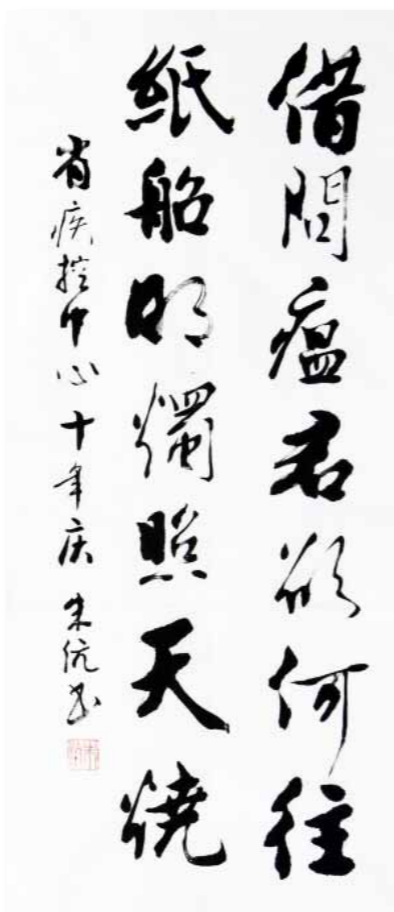 借問瘟君欲何往
紙船明燭照天燒
省疾控中心十年庆 朱伉书